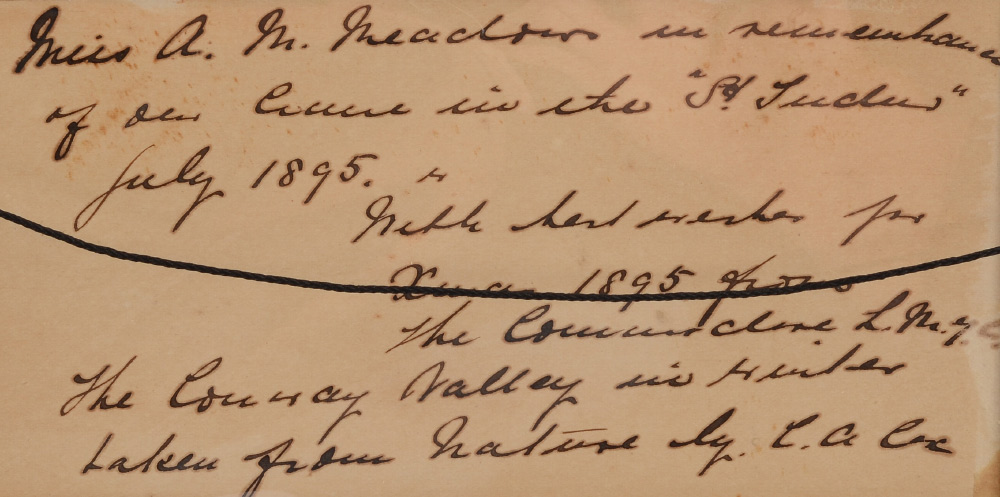 Miss A. M. Meadows in remembrance
of our Cruise in the "St Tudno"
July 1895. "
With best wishes for
Xmas 1895 from
the Commodore L. M. Y.
The Conway Valley in winter
taken from Nature by C. A Cox